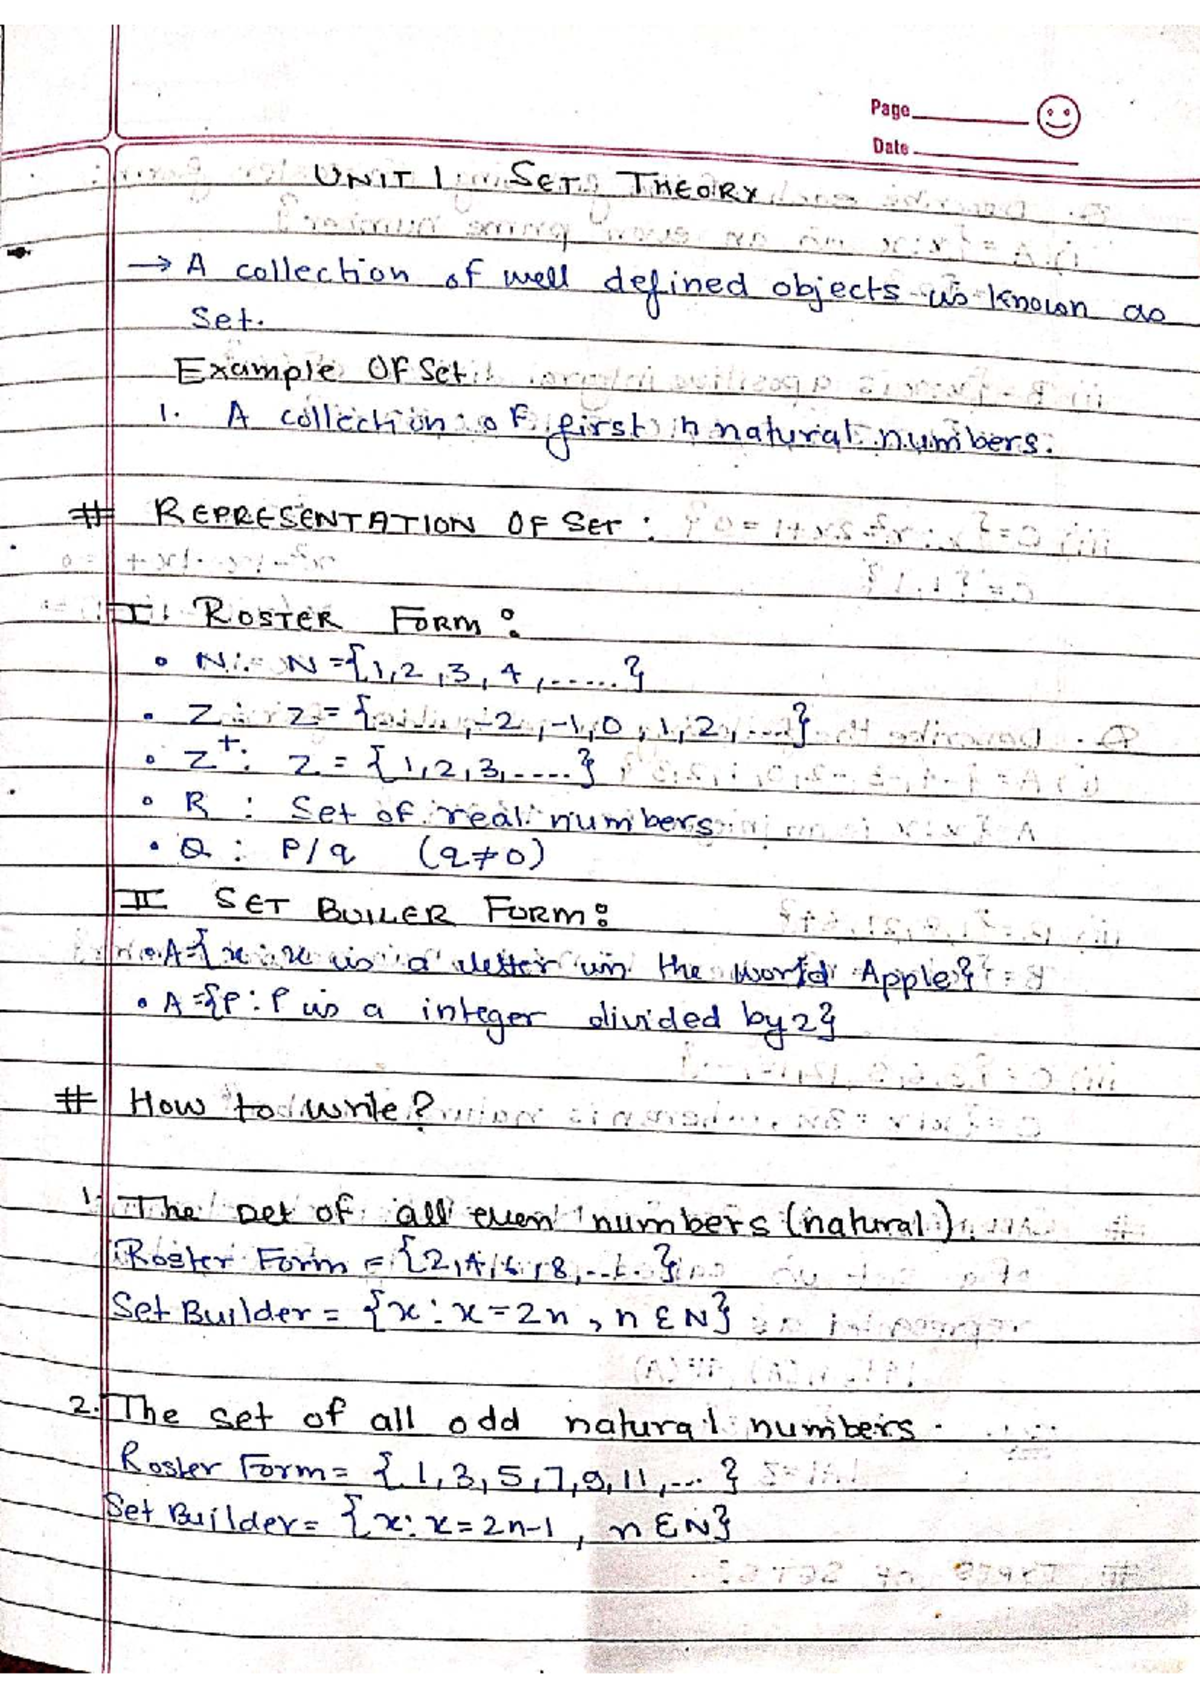 Page
Date
UNIT 1 SET THEORY
→ A collection of well defined objects is known as
Set.
Example Of Set:
1. A collection oF first n natural numbers.
# REPRESENTATION OF SET :
I. ROSTER FORM :
• N :- N = {1, 2, 3, 4, ......}
• Z : Z = {...., -2, -1, 0, 1, 2, ....}
• Z⁺: Z = {1, 2, 3, .....}
• R : Set of real numbers
• Q : P/q (q≠0)
II SET BUILER FORM :
• A={x : x is a letter in the world Apple}
• A={P : P is a integer divided by 2}
# How to write?
1. The set of all even numbers (natural).
Roster Form = {2, 4, 6, 8, ....}
Set Builder = {x : x = 2n, n ∈ N}
2. The set of all odd natural numbers.
Roster Form = {1, 3, 5, 7, 9, 11, ...}
Set Builder = {x: x = 2n-1, n ∈ N}